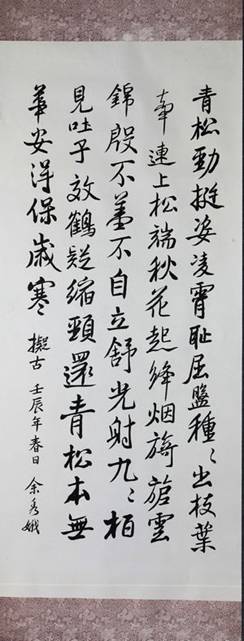 青松勁挺姿凌霄恥屈盤種〻出枝葉
牽連上松端秋花起絳烟旖旎雲
錦殷不羞不自立舒光射丸〻柏
見吐子效鶴疑縮頸還青松本無
華安得保歲寒 擬古 壬辰年春日 余秀娥